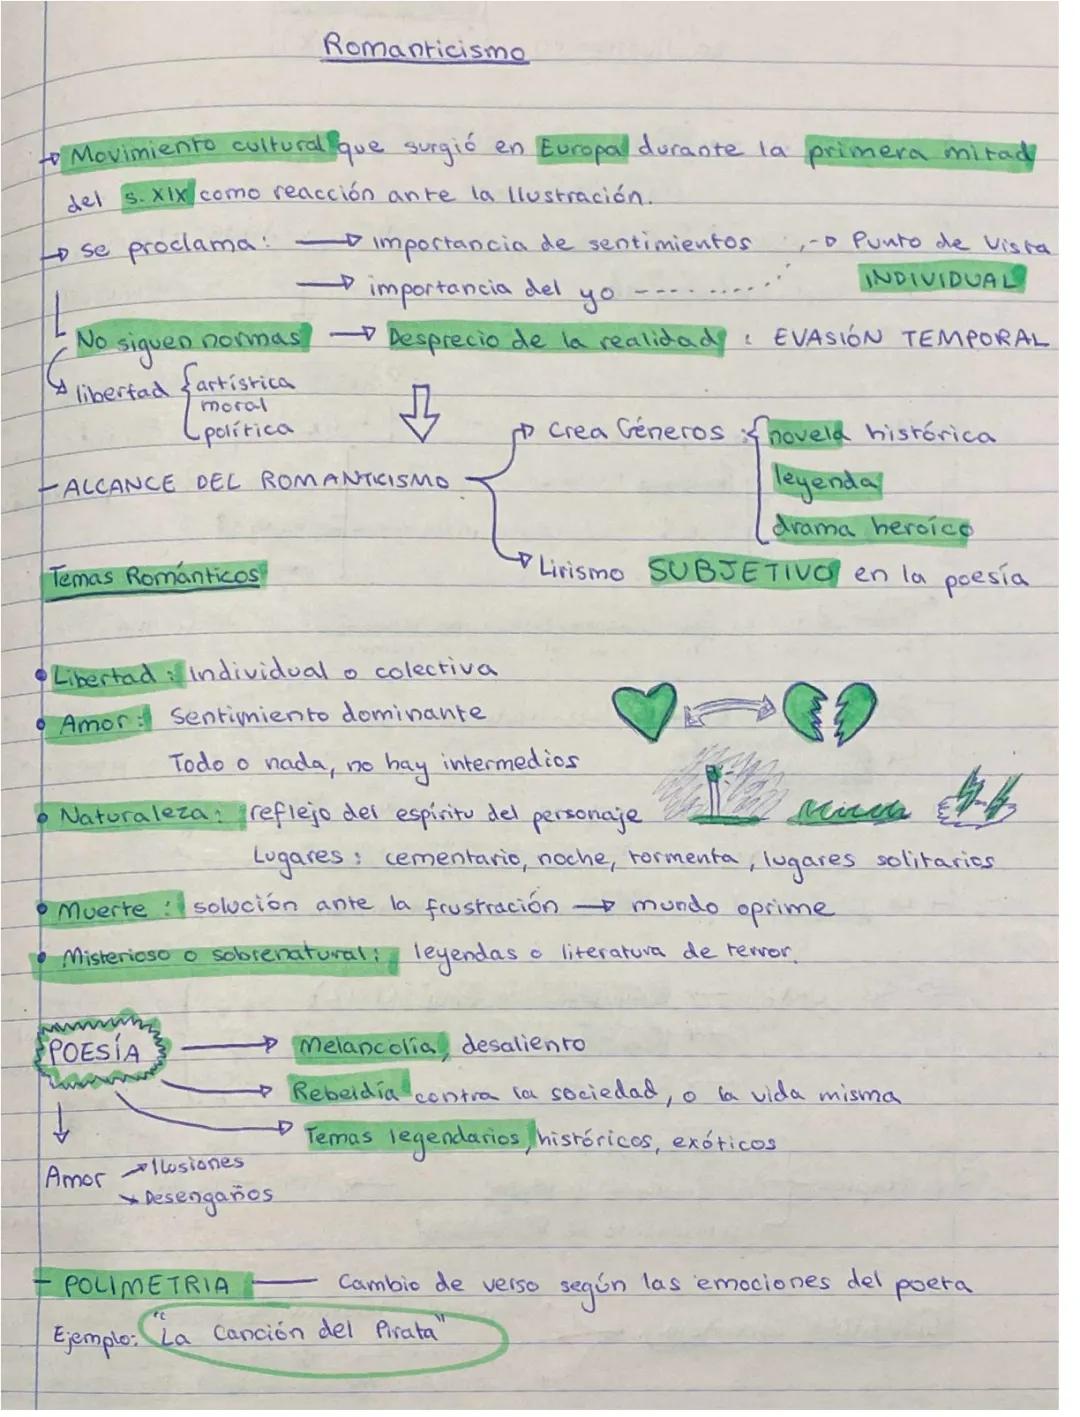 Romanticismo
→ Movimiento cultural que surgió en Europa durante la primera mitad
del s. XIX como reacción ante la Ilustración.
→ se proclama: → importancia de sentimientos → Punto de vista
→ importancia del yo ---- ...... INDIVIDUAL
No siguen normas → Desprecio de la realidad : EVASIÓN TEMPORAL
→ libertad { artística
moral
política
- ALCANCE DEL ROMANTICISMO
→ Crea Géneros : { novela histórica
leyenda
drama heroíco
→ Lirismo SUBJETIVO en la poesía
Temas Románticos
• Libertad : individual o colectiva
• Amor : Sentimiento dominante
Todo o nada, no hay intermedios
• Naturaleza : reflejo del espíritu del personaje
Lugares : cementario, noche, tormenta, lugares solitarios
• Muerte : solución ante la frustración → mundo oprime
• Misterioso o sobrenatural : leyendas o literatura de terror.
POESÍA → Melancolía, desaliento
→ Rebeldía contra la sociedad, o la vida misma
→ Temas legendarios, históricos, exóticos
↓
Amor → Ilusiones
→ Desengaños
- POLIMETRIA — Cambio de verso según las emociones del poeta
Ejemplo: "La Canción del Pirata"